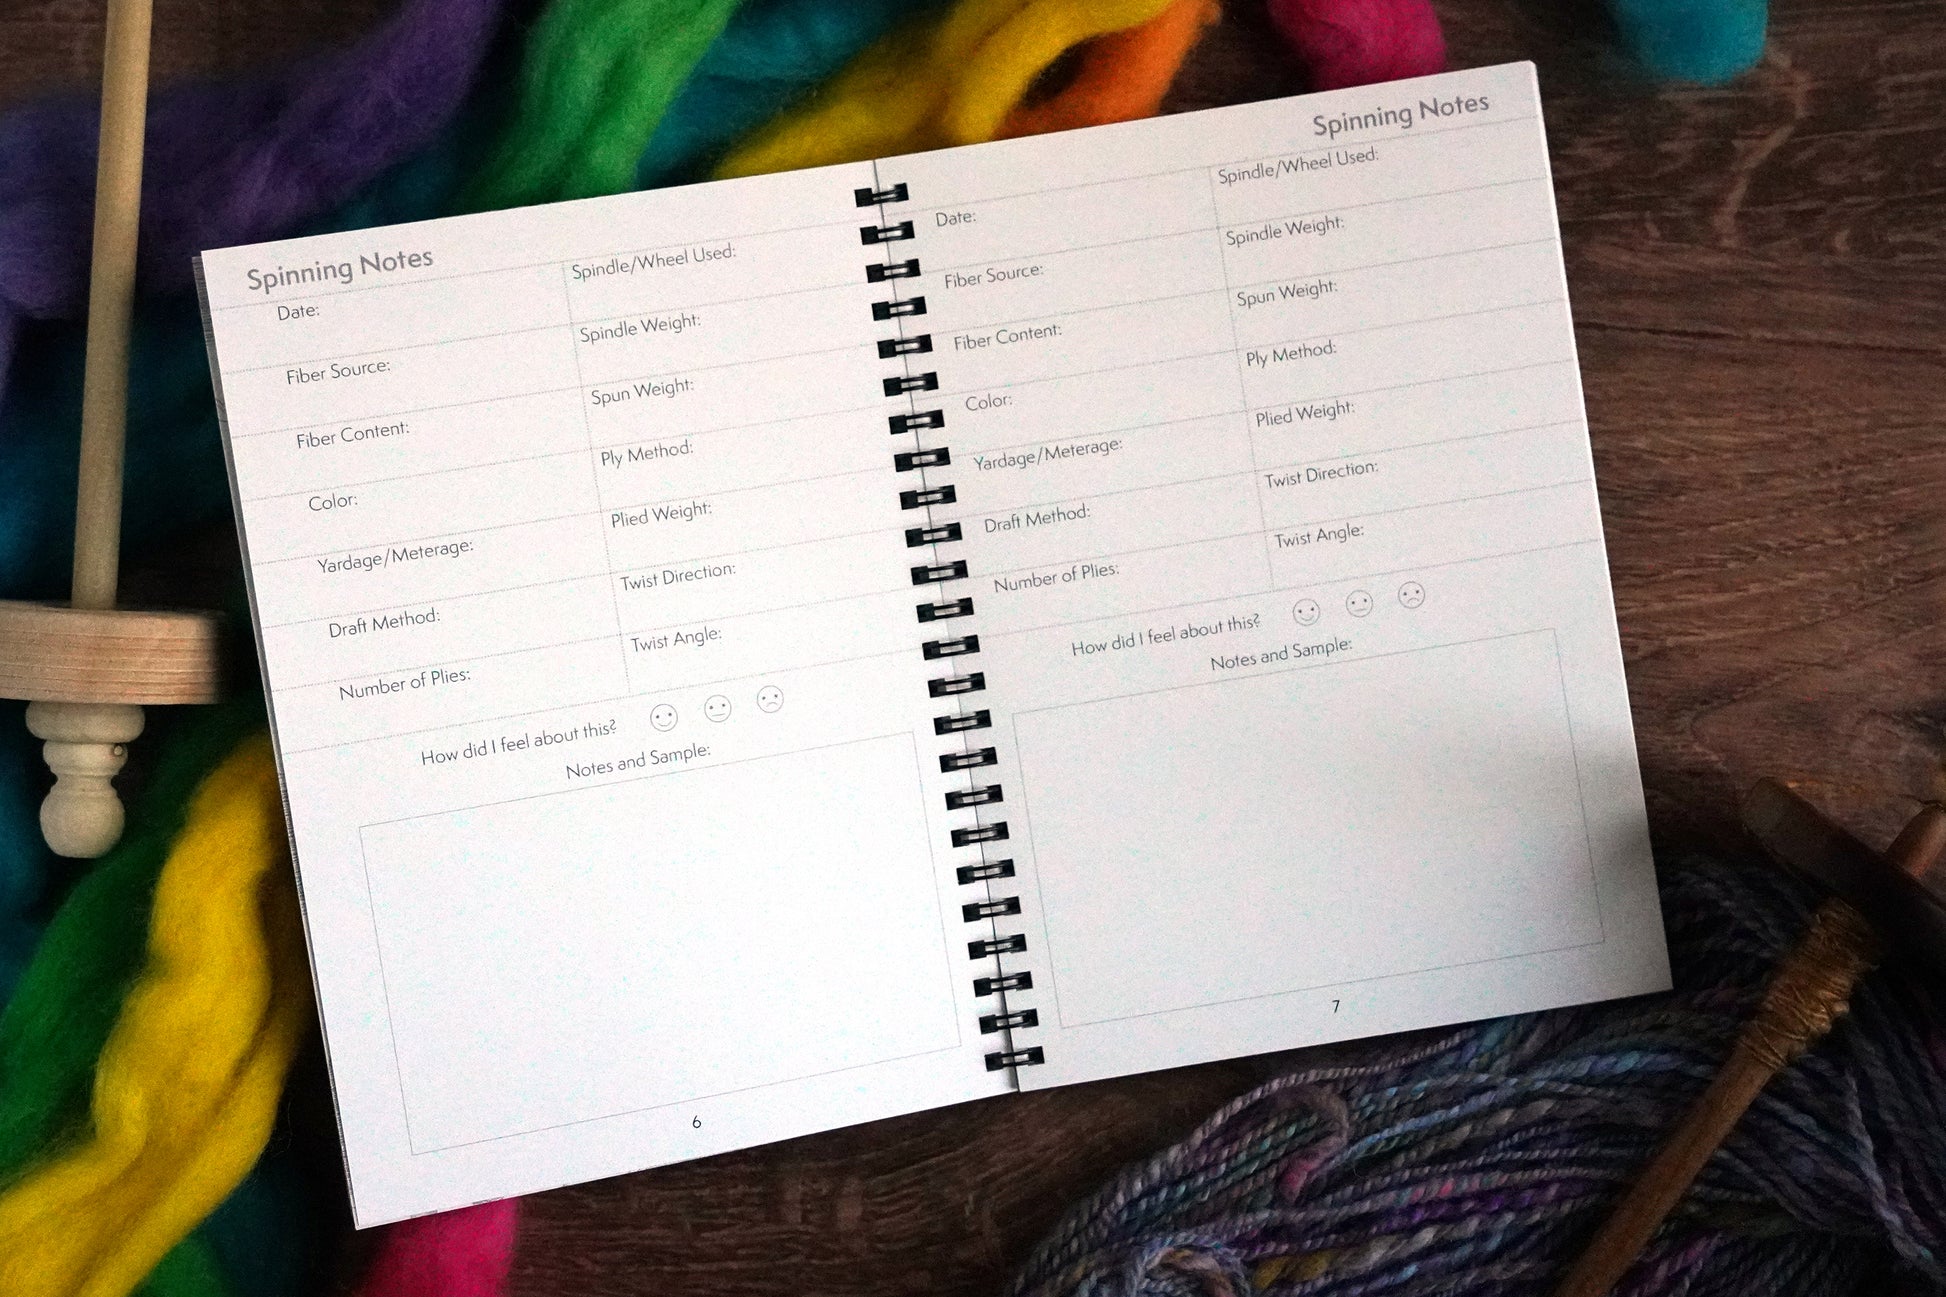 Spinning Notes
Date:
Spindle/Wheel Used:
Fiber Source:
Spindle Weight:
Fiber Content:
Spun Weight:
Color:
Ply Method:
Yardage/Meterage:
Plied Weight:
Draft Method:
Twist Direction:
Number of Plies:
Twist Angle:
How did I feel about this?
Notes and Sample:
6
Spinning Notes
Date:
Spindle/Wheel Used:
Fiber Source:
Spindle Weight:
Fiber Content:
Spun Weight:
Color:
Ply Method:
Yardage/Meterage:
Plied Weight:
Draft Method:
Twist Direction:
Number of Plies:
Twist Angle:
How did I feel about this?
Notes and Sample:
7